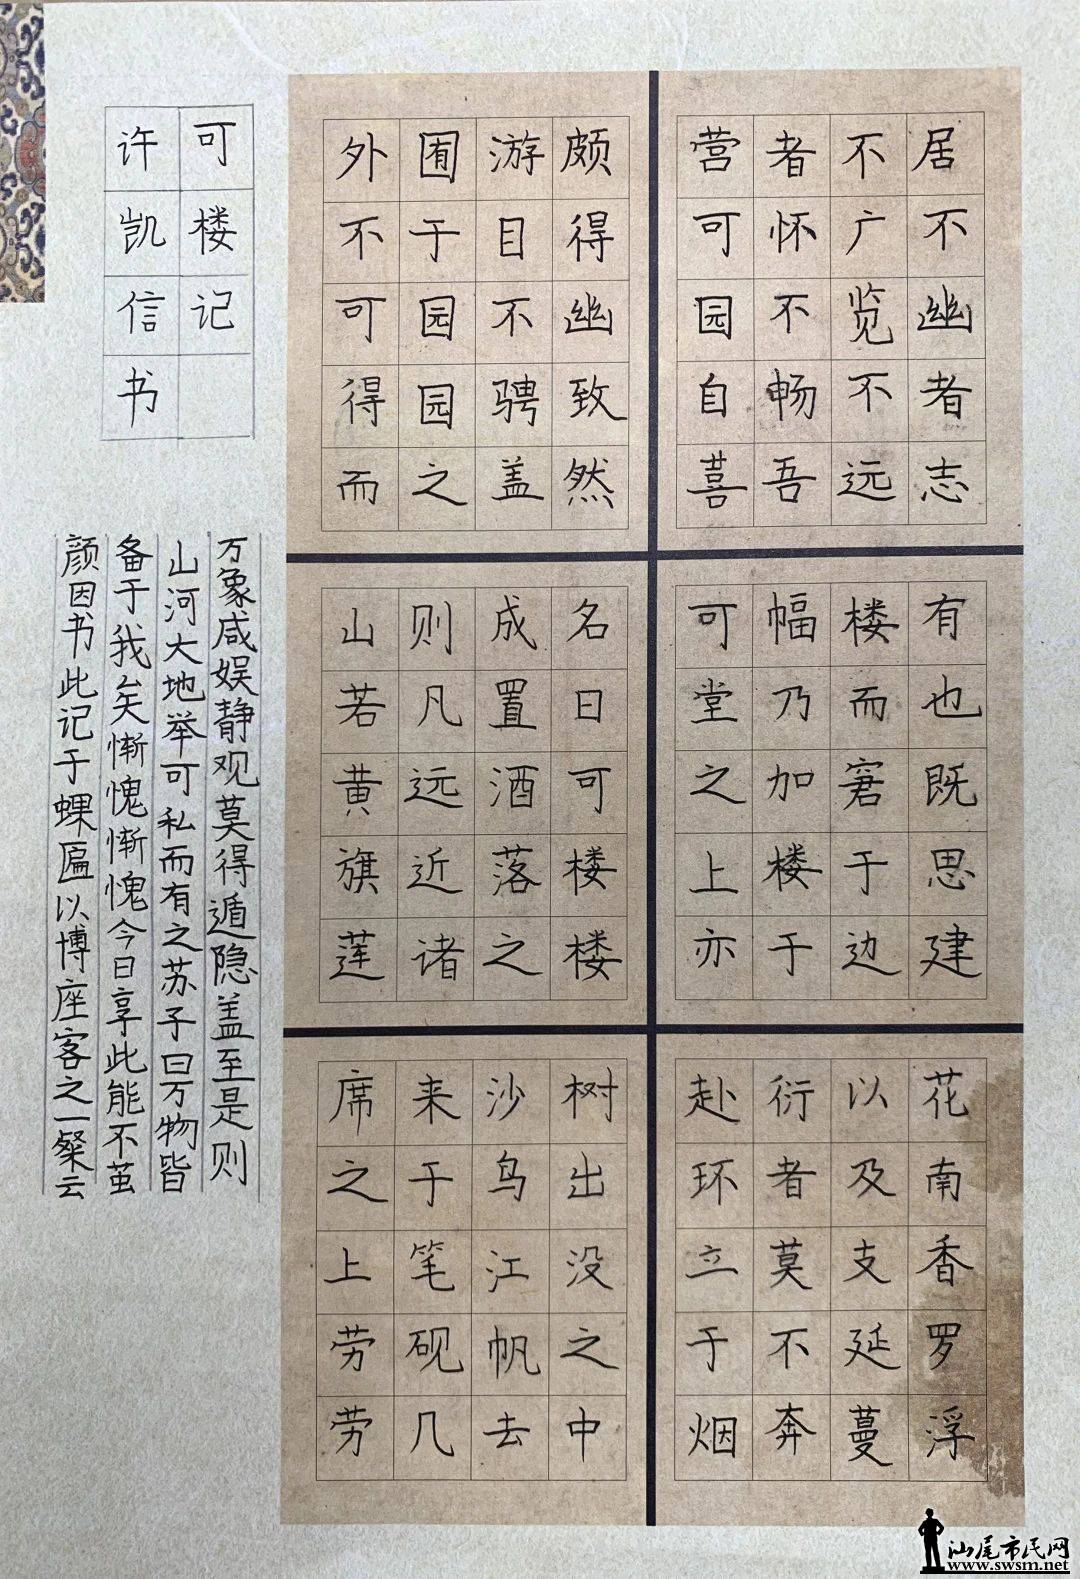 居不幽者志
不广览不远
者怀不畅吾
营可园自喜
颇得幽致然
游目不骋盖
囿于园园之
外不可得而
有也既思建
楼而窘于边
幅乃加楼于
可堂之上亦
名曰可楼楼
成置酒落之
则凡远近诸
山若黄旗莲
花南香罗浮
以及支延蔓
衍者莫不奔
赴环立于烟
树出没之中
沙鸟江帆去
来于笔砚几
席之上劳劳
可楼记
许凯信书
万象咸娱静观莫得遁隐盖至是则
山河大地举可私而有之苏子曰万物皆
备于我矣惭愧惭愧今日享此能不茧
颜因书此记于蜾匾以博座客之一粲云
汕尾市民网
www.swsm.net